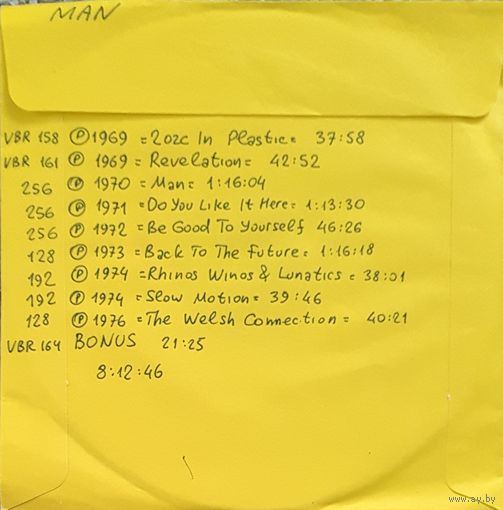 MAN
VBR 158 Ⓟ 1969 = 2ozc In Plastic = 37:58
VBR 161 Ⓟ 1969 = Revelation = 42:52
256 Ⓟ 1970 = Man = 1:16:04
256 Ⓟ 1971 = Do You Like It Here = 1:13:30
256 Ⓟ 1972 = Be Good To Yourself 46:26
128 Ⓟ 1973 = Back To The Future = 1:16:18
192 Ⓟ 1974 = Rhinos Winos & Lunatics = 38:01
192 Ⓟ 1974 = Slow Motion = 39:46
128 Ⓟ 1976 = The Welsh Connection = 40:21
VBR 164 BONUS 21:25
8:12:46
www.ay.by